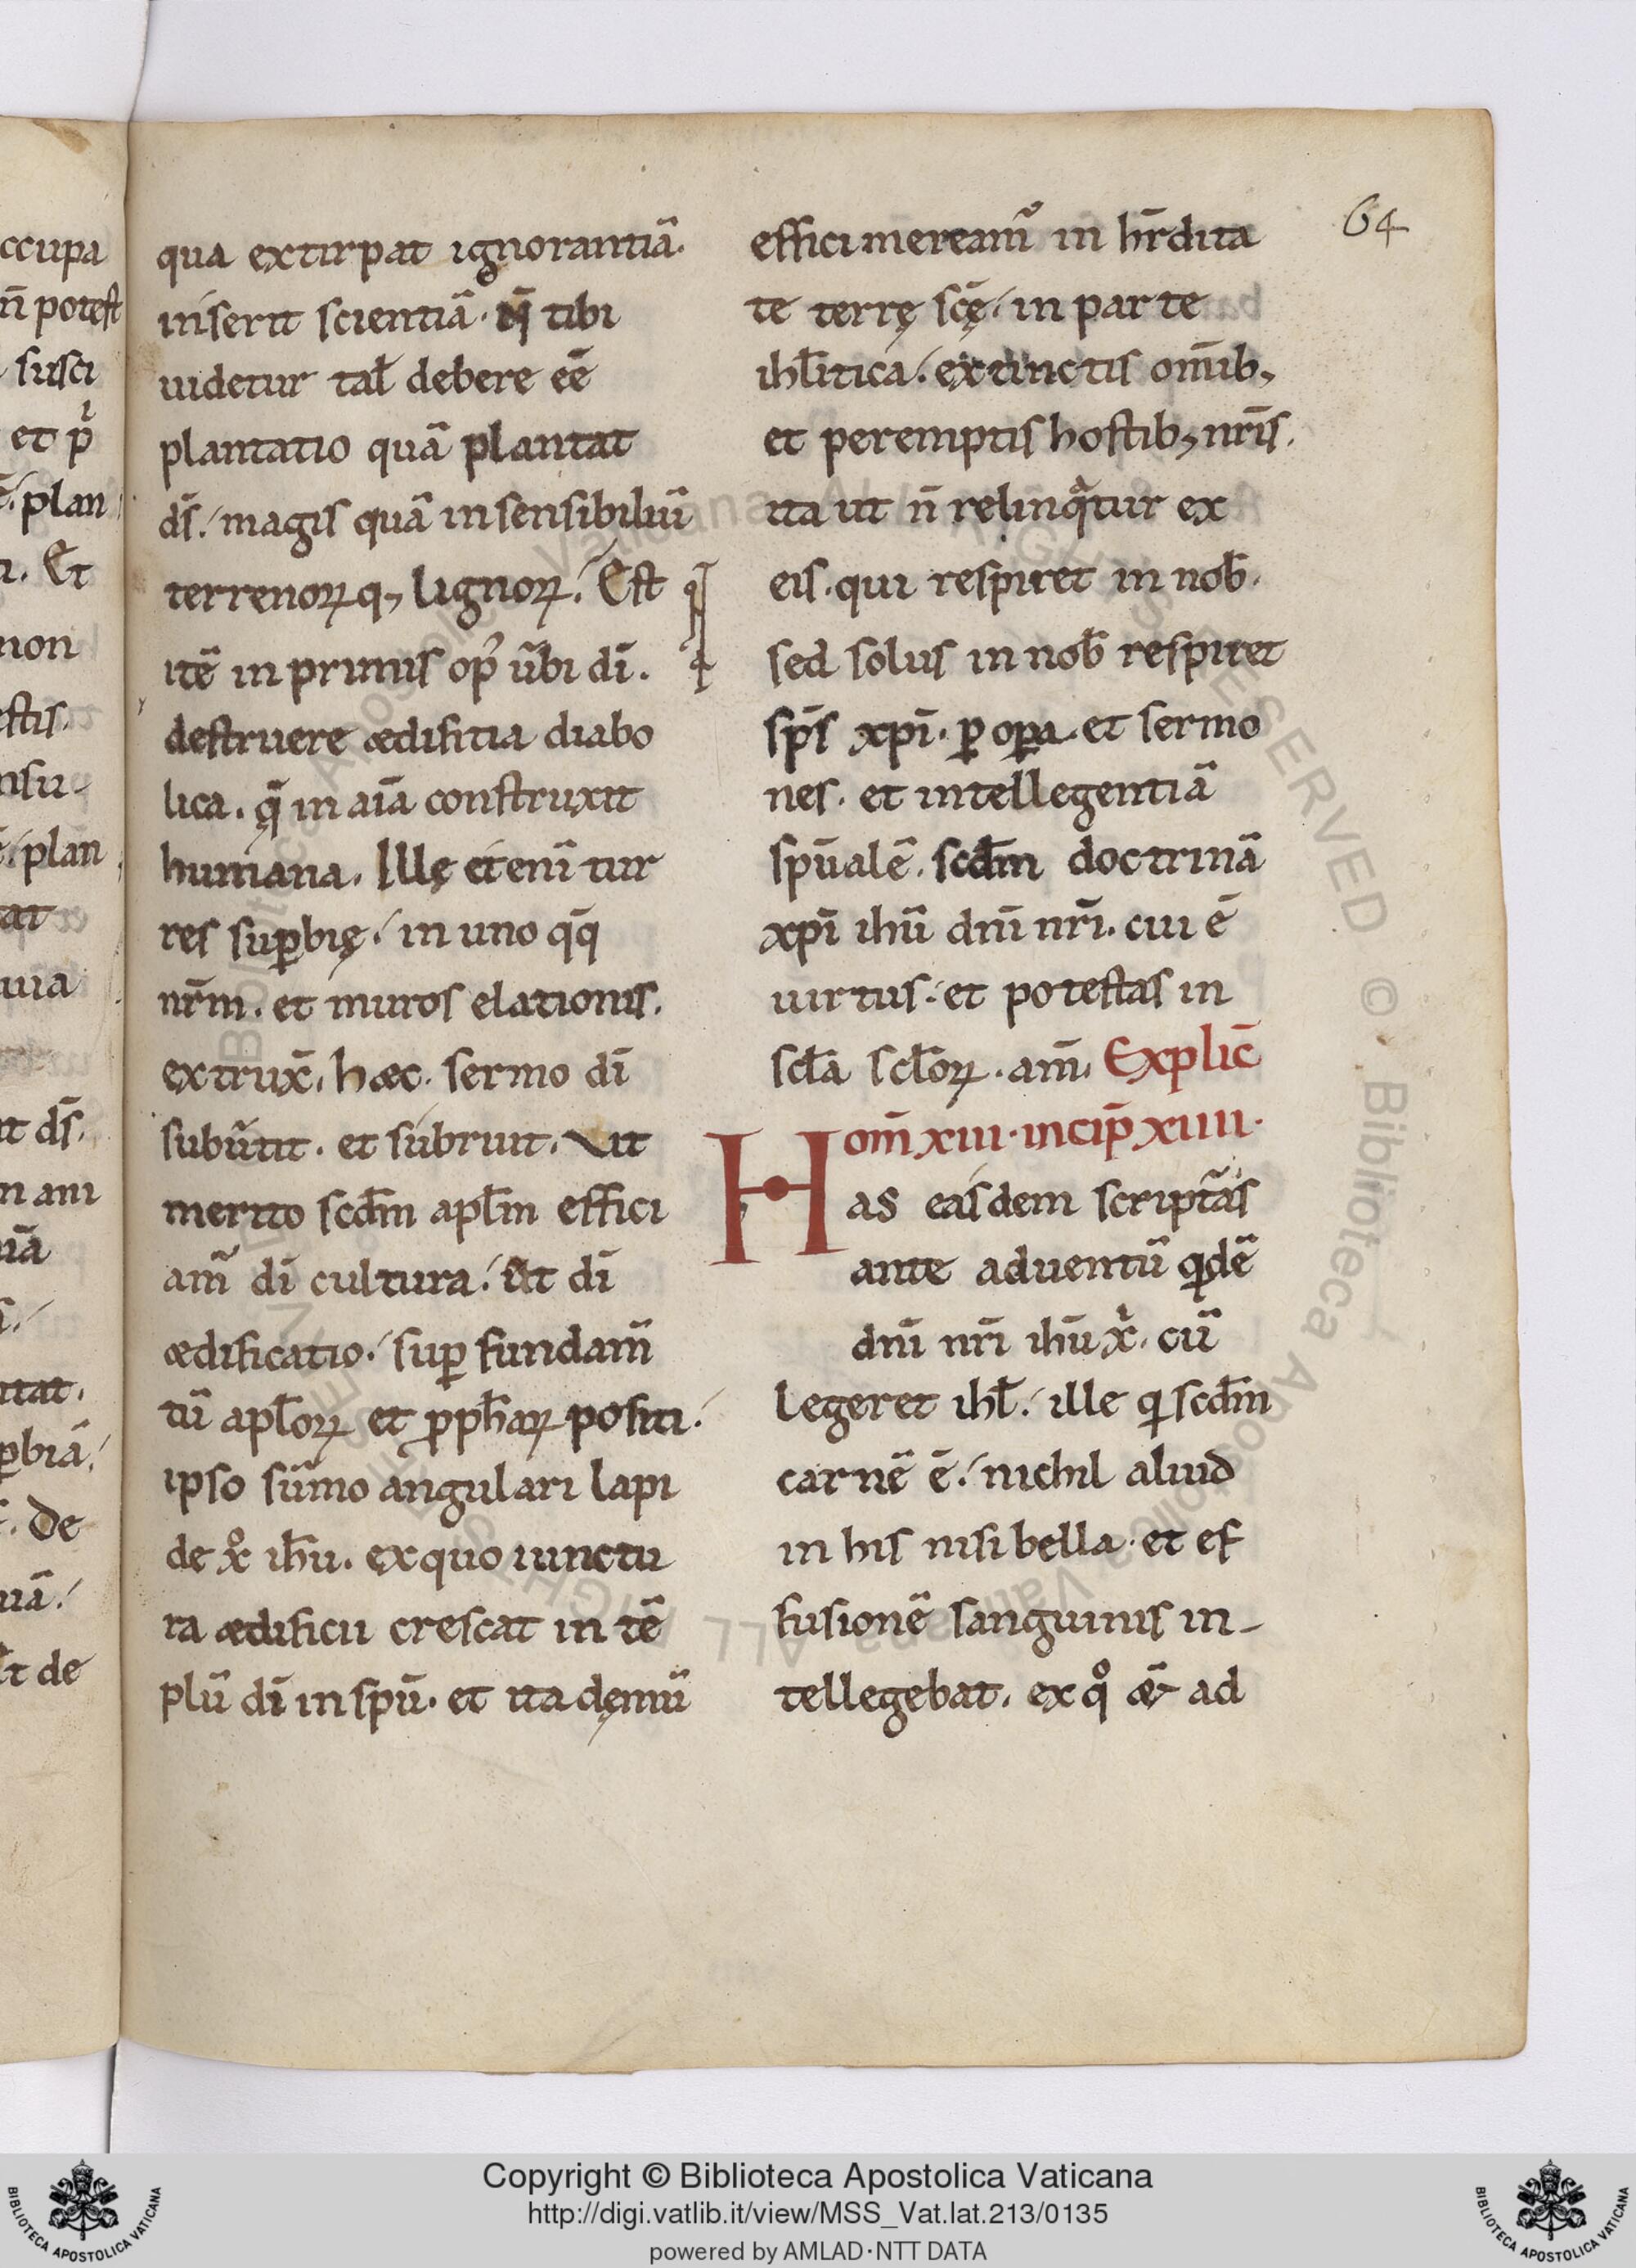 ccupa
n̄ potest
susci
et p̄
plan
Et
non
estis.
nsu
plan
tat
uia
it ds̄.
n ani
iā
utat.
ꝑbiā.
. De
uā.
t de
qua extirpat ignorantiā.
inserit scientiā. N̄ tibi
uidetur tał debere eē
plantatio quā plantat
ds̄. magis quā insensibiliū
terrenorꝝ q, lignorꝝ. Est
itē in primis op̄ ūbi dī.
destruere ædifitia diabo
lica. q̄ in aīa construxit
humana. Illę etenī tur
res suꝑbię. in uno qq̄
nr̄m. et muros elationis.
extrux̄. hæc. sermo dī
subūtit. et subruit. Vt
merito scd̄m apłm effici
am̄ dī cultura. & dī
ædificatio. suꝑ fundam̄
tū apłorꝝ et ꝓpħarꝝ positi.
ipso sūmo angulari lapi
de xͦ ihū. ex quo iunctu
ra ædificii crescat in tē
plū dī in spū. et ita dęmū
effici meream̄ in hr̄dita
te terrę scę̄. in parte
ihłitica. extinctis om̄ib,
et peremptis hostib, nr̄is.
ita ut n̄ relinqͣtur ex
eis. qui respiret in nob̄.
sed solus in nob̄ respiret
sp̄s xp̄i. ꝑ oꝑa. et sermo
nes. et intellegentiā
sp̄ualē. scd̄m doctrinā
xp̄i ihū dn̄i nr̄i. cui ē
uirtus. et potestas in
scła scłorꝝ. am̄. Explic̄
om̄ xiii. incip̄ xiiii.
Has easdem scriptās
ante aduentū qdē
dn̄i nr̄i ihū xͥ. cū
legeret ihł. ille q scd̄m
carnē ē. nichil aliud
in his nisi bella. et ef
fusionē sanguinis in-
tellegebat. ex qͦ & ad
64
Copyright © Biblioteca Apostolica Vaticana
http://digi.vatlib.it/view/MSS_Vat.lat.213/0135
powered by AMLAD·NTT DATA
BIBLIOTECA APOSTOLICA VATICANA
BIBLIOTECA APOSTOLICA VATICANA